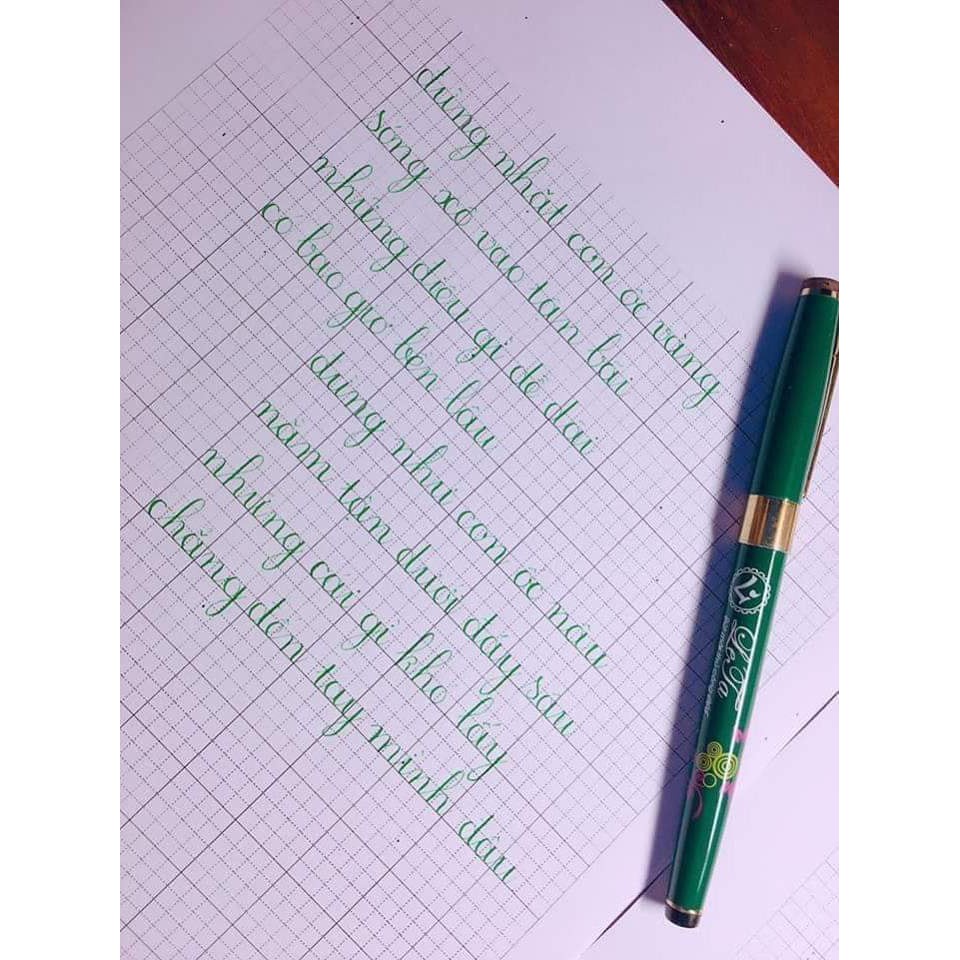 đừng nhặt con ốc vàng
sóng xô vào tận bãi
những điều gì dễ dãi
có bao giờ bền lâu
đừng như con ốc nâu
nằm tận dưới đáy sâu
những cái gì khó lấy
chẳng đến tay mình đâu